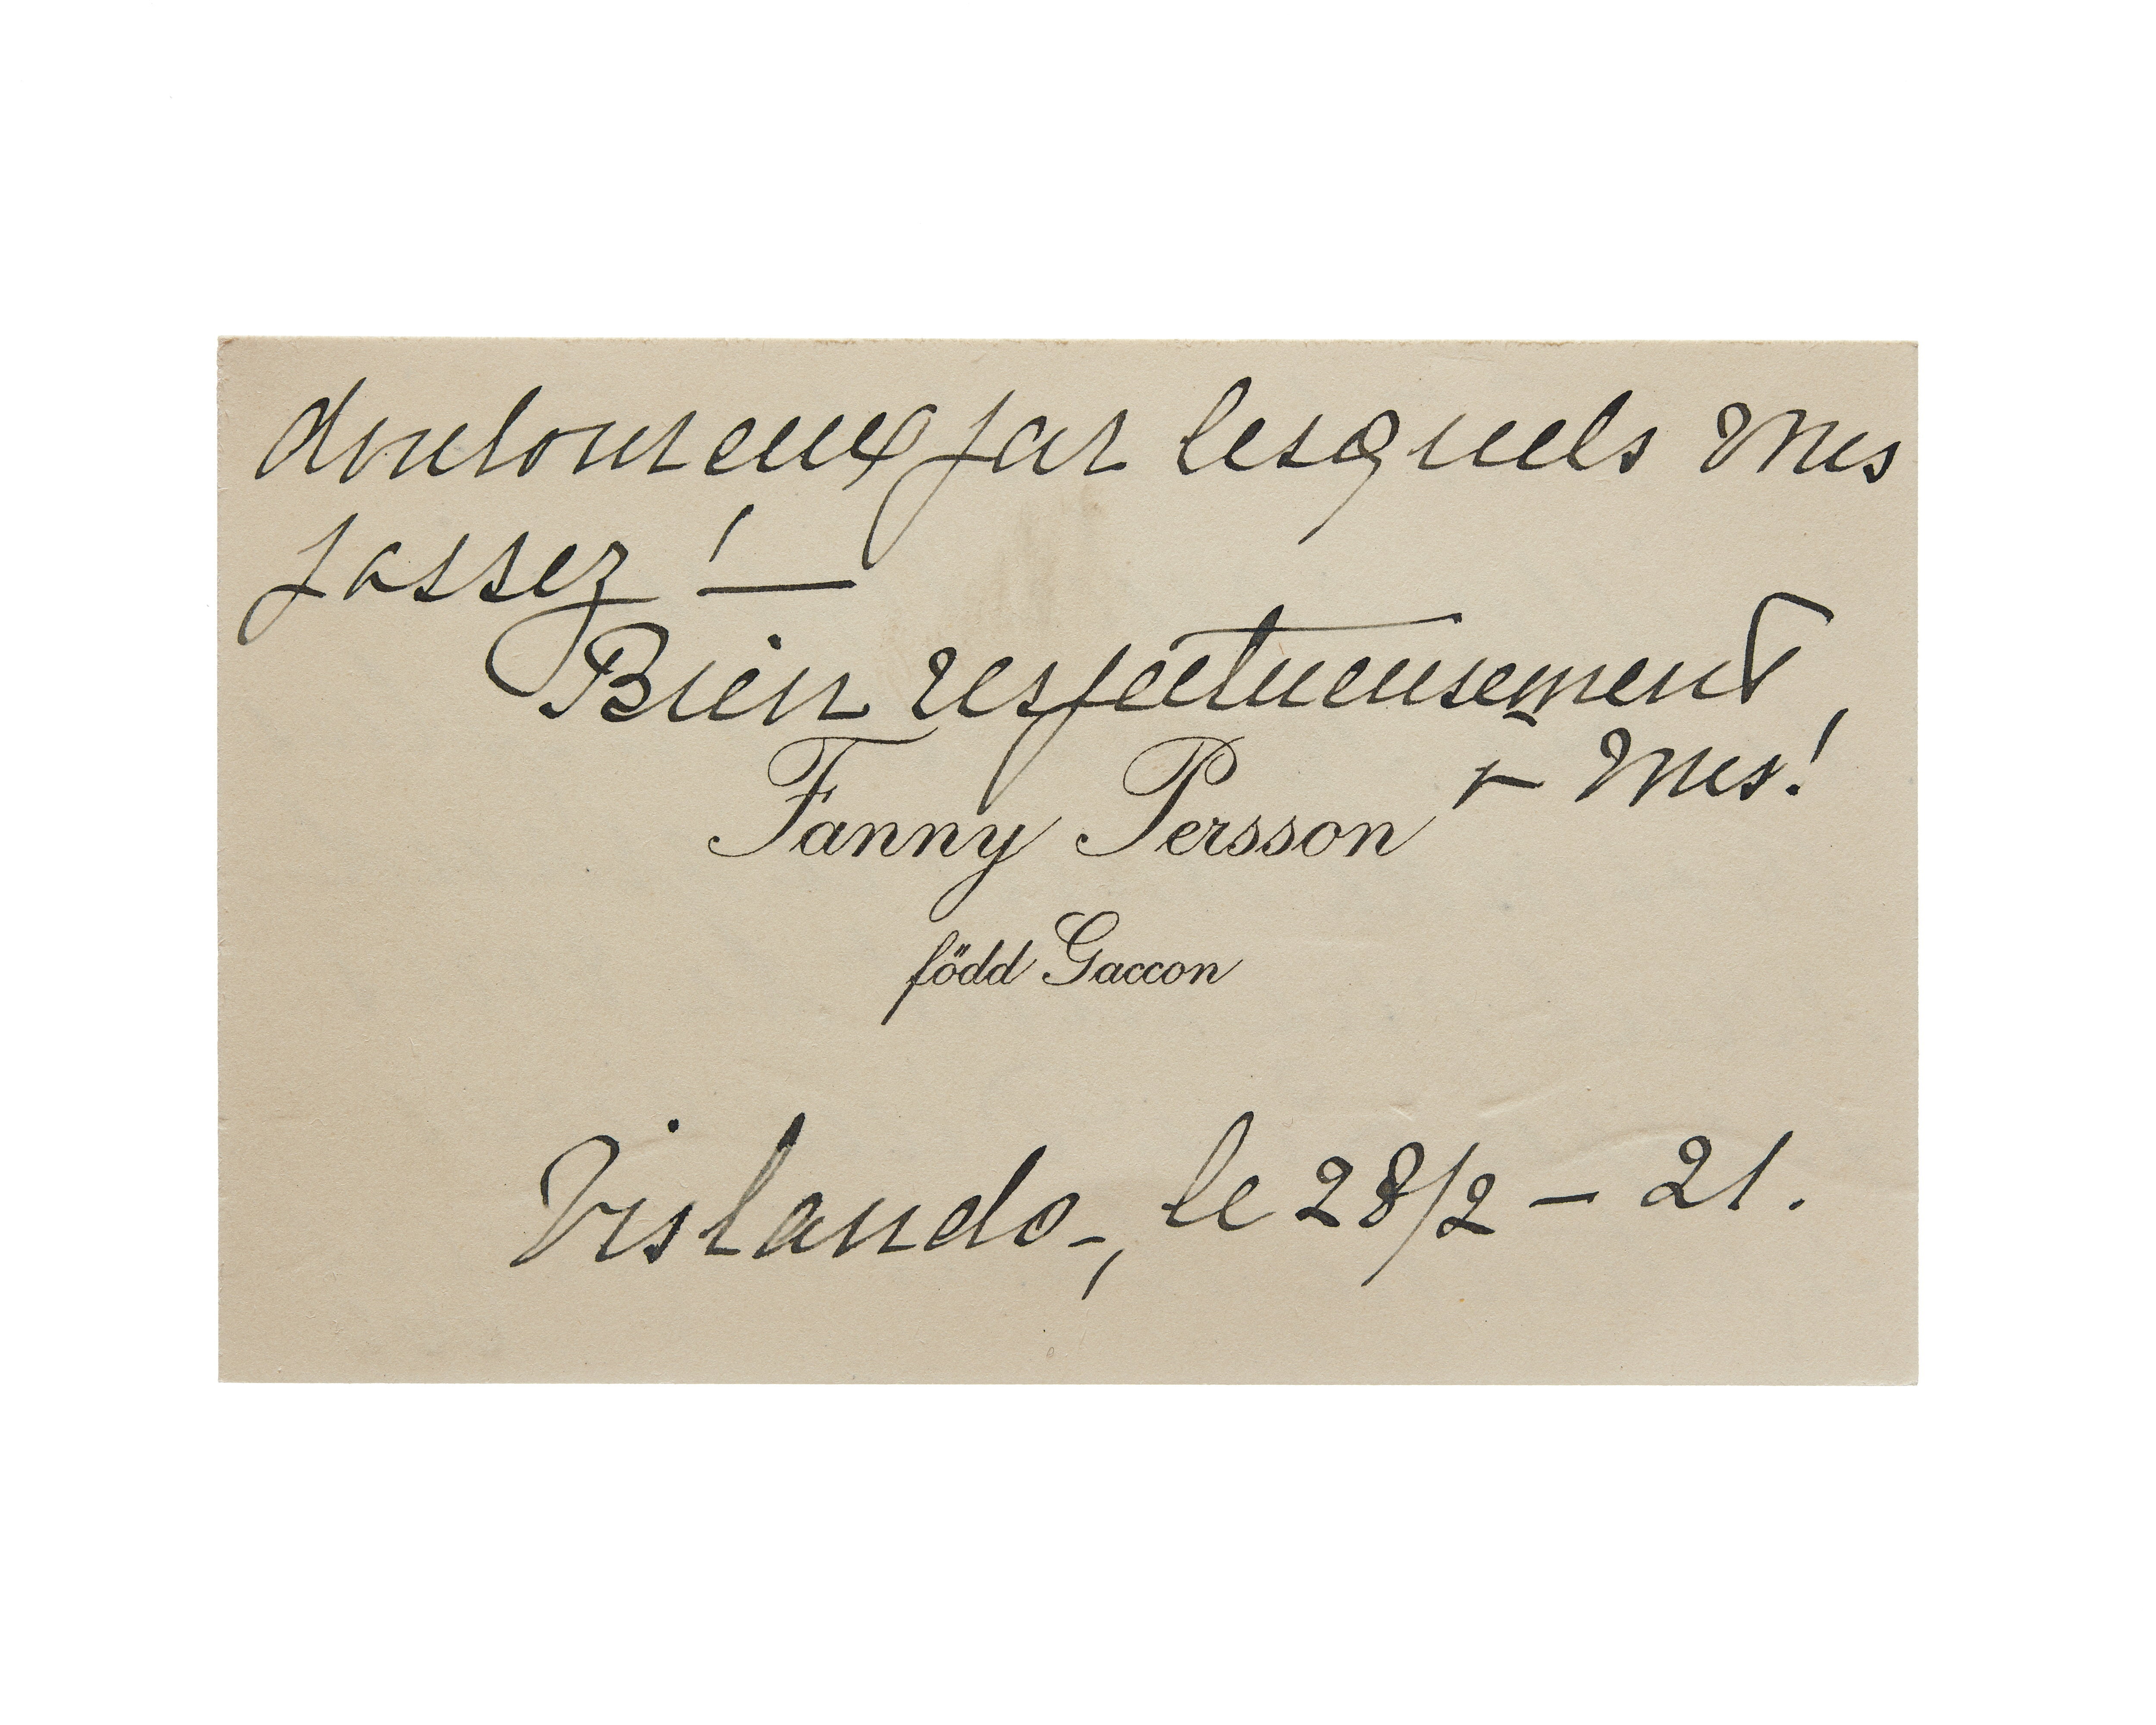 douloureux par lesquels Vous
passez ! —
Bien respectueusement,
à Vous!
Fanny Persson
född Gaccon
Vislanda, le 28/2 – 21.